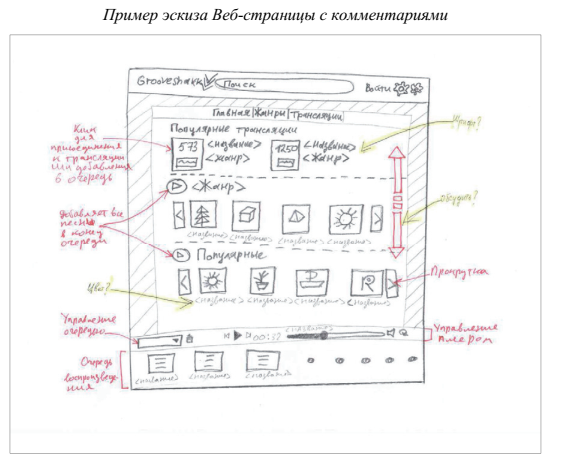 Пример эскиза Веб-страницы с комментариями
Grooveshark
Поиск
Войти
Главная|Жанры|Трансляции
Популярные трансляции
573
<название>
<жанр>
1250
<название>
<жанр>
Клик
для
присоединения
к трансляции
или добавления
в очередь
Шрифт?
<Жанр>
Добавляет все
песни
в конец
очереди
<название>
<название>
<название>
<название>
Популярные
Цвет?
<название>
<название>
<название>
<название>
Прокрутка
Управление
очередью
00:37
<название>
Управление
плеером
Очередь
воспроизведе-
ния
<название>
<название>
<название>